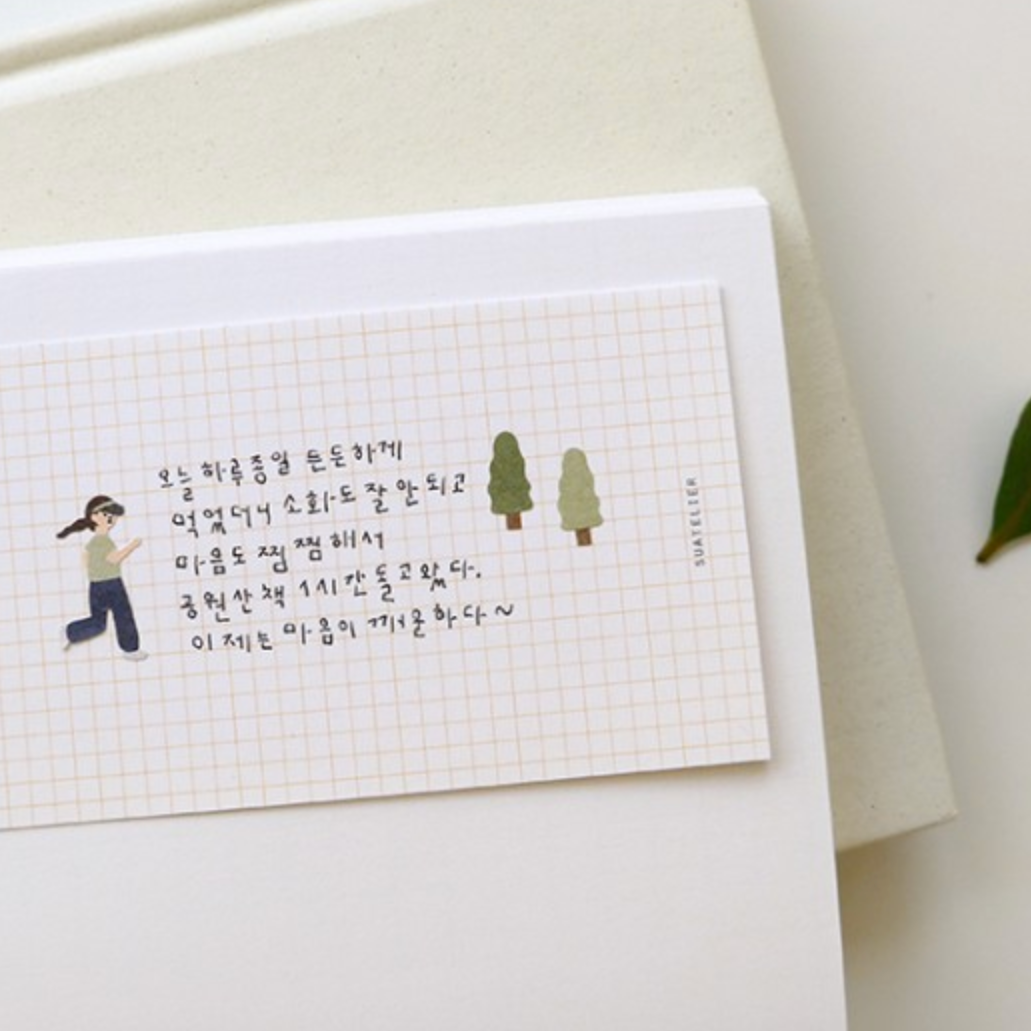 오늘 하루종일 든든하게
먹었더니 소화도 잘 안되고
마음도 찜찜해서
공원산책 1시간 돌고왔다.
이제는 마음이 꺼울하다~
SUATELIER